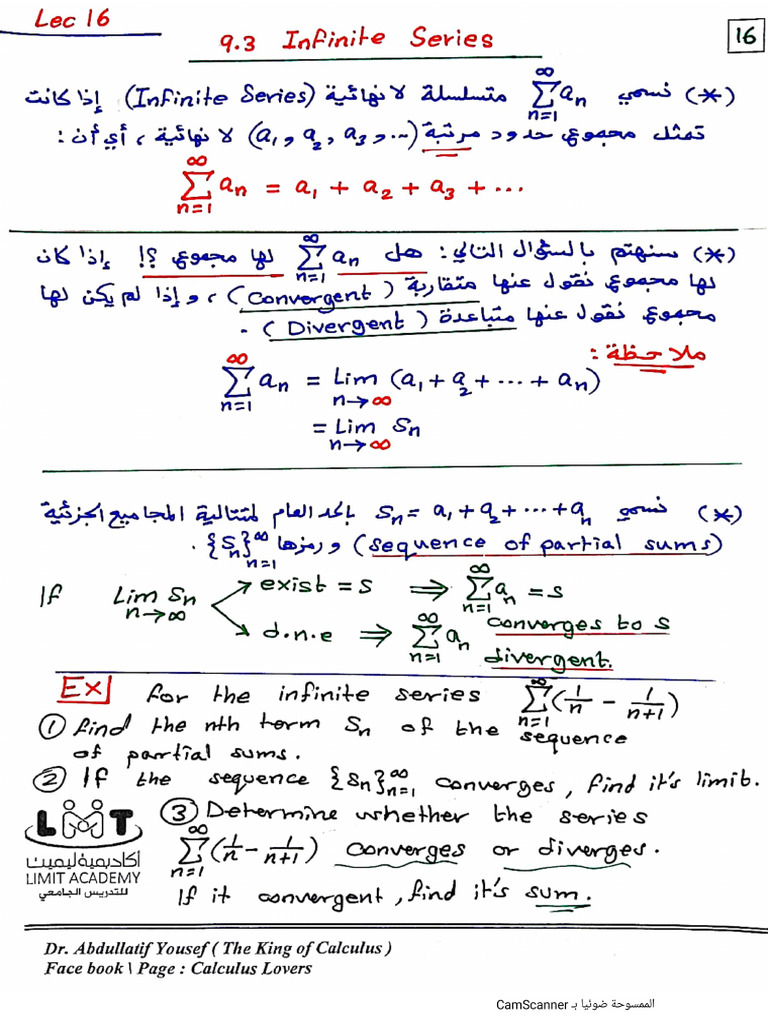 Lec 16
9.3 Infinite Series
16
(*) نسمي ∞Σn=1 an متسلسلة لانهائية (Infinite Series) إذا كانت
تمثل مجموع حدود مرتبة (a1 و a2 و a3 و...) لانهائية ، أي أن :
∞Σn=1 an = a1 + a2 + a3 + ...
(*) سنهتم بالسؤال التالي : هل ∞Σn=1 an لها مجموع ؟! إذا كان
لها مجموع نقول عنها متقاربة (Convergent) ، وإذا لم يكن لها
مجموع نقول عنها متباعدة (Divergent) .
ملاحظة :
∞Σn=1 an = Lim n→∞ (a1 + a2 + ... + an)
= Lim n→∞ Sn
(*) نسمي Sn = a1 + a2 + ... + an بالحد العام لمتتالية المجاميع الجزئية
(sequence of partial sums) ورمزها {Sn}∞n=1 .
If Lim n→∞ Sn → exist = s ⇒ ∞Σn=1 an = s
converges to s
→ d.n.e ⇒ ∞Σn=1 an
divergent.
Ex for the infinite series ∞Σn=1 (1/n - 1/(n+1))
① find the nth term Sn of the sequence
of partial sums.
② If the sequence {Sn}∞n=1 converges, find it's limit.
③ Determine whether the series
∞Σn=1 (1/n - 1/(n+1)) converges or diverges.
If it convergent, find it's sum.
LMT
أكاديمية ليميت
LIMIT ACADEMY
للتدريس الجامعي
Dr. Abdullatif Yousef ( The King of Calculus )
Face book \ Page : Calculus Lovers
الممسوحة ضوئيا بـ CamScanner